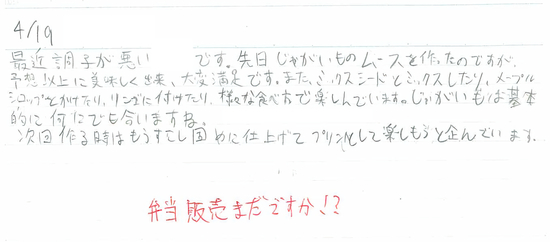 4/19
最近調子が悪い です。先日じゃがいものムースを作ったのですが、
予想以上に美味しく出来、大変満足です。また、ミックスシードとミックスしたり、メープル
シロップをかけたり、リンゴに付けたり、様々な食べ方で楽しんでいます。じゃがいもは基本
的に何にでも合いますね。
次回作る時はもうすこし固めに仕上げてプリンとして楽しもうと企んでいます。
弁当販売まだですか!?